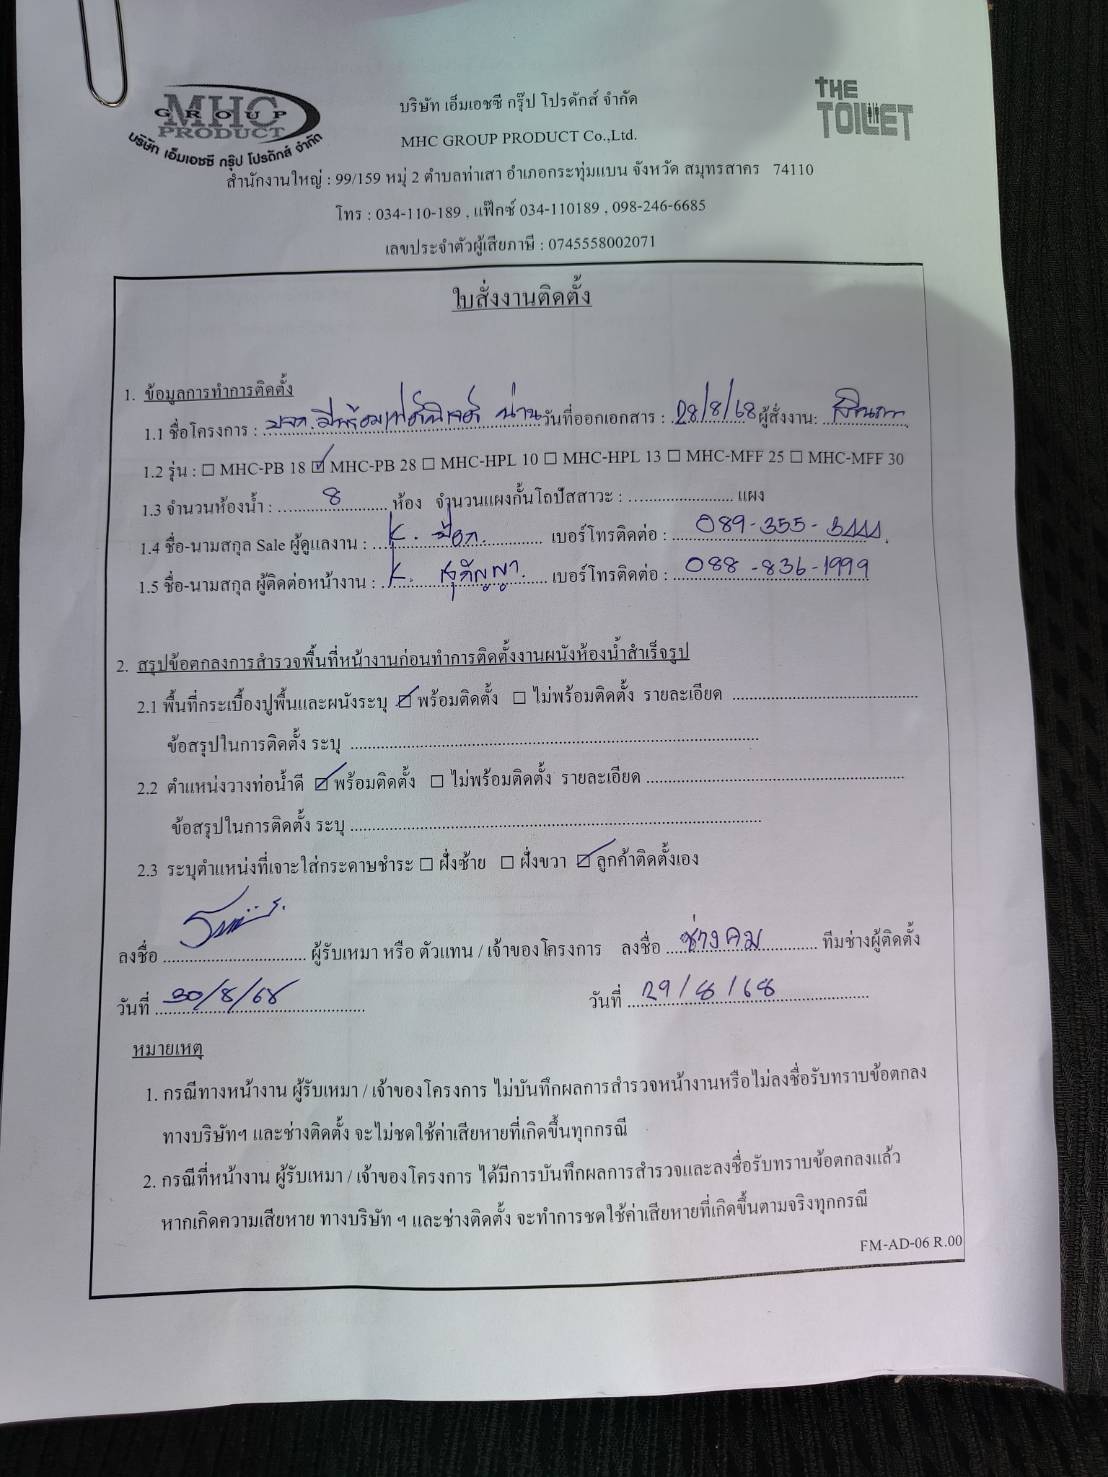 MHC
GROUP
PRODUCT
บริษัท เอ็มเอชซี กรุ๊ป โปรดักส์ จำกัด
THE
TOILET
บริษัท เอ็มเอชซี กรุ๊ป โปรดักส์ จำกัด
MHC GROUP PRODUCT Co.,Ltd.
สำนักงานใหญ่ : 99/159 หมู่ 2 ตำบลท่าเสา อำเภอกระทุ่มแบน จังหวัด สมุทรสาคร 74110
โทร : 034-110-189 , แฟ๊กซ์ 034-110189 , 098-246-6685
เลขประจำตัวผู้เสียภาษี : 0745558002071
ใบสั่งงานติดตั้ง
1. ข้อมูลการทำการติดตั้ง
1.1 ชื่อโครงการ : น่าน วันที่ออกเอกสาร : 28/8/68 ผู้สั่งงาน:
1.2 รุ่น : ☐ MHC-PB 18 ☑ MHC-PB 28 ☐ MHC-HPL 10 ☐ MHC-HPL 13 ☐ MHC-MFF 25 ☐ MHC-MFF 30
1.3 จำนวนห้องน้ำ : 8 ห้อง จำนวนแผงกั้นโถปัสสาวะ : .......................... แผง
1.4 ชื่อ-นามสกุล Sale ผู้ดูแลงาน : K. เบอร์โทรติดต่อ : 089-355-
1.5 ชื่อ-นามสกุล ผู้ติดต่อหน้างาน : K. สุกัญญา เบอร์โทรติดต่อ : 088-836-1999
2. สรุปข้อตกลงการสำรวจพื้นที่หน้างานก่อนทำการติดตั้งงานผนังห้องน้ำสำเร็จรูป
2.1 พื้นที่กระเบื้องปูพื้นและผนังระบุ ☑ พร้อมติดตั้ง ☐ ไม่พร้อมติดตั้ง รายละเอียด ..............................
ข้อสรุปในการติดตั้ง ระบุ ..............................
2.2 ตำแหน่งวางท่อน้ำดี ☑ พร้อมติดตั้ง ☐ ไม่พร้อมติดตั้ง รายละเอียด ..............................
ข้อสรุปในการติดตั้ง ระบุ ..............................
2.3 ระบุตำแหน่งที่เจาะใส่กระดาษชำระ ☐ ฝั่งซ้าย ☐ ฝั่งขวา ☑ ลูกค้าติดตั้งเอง
ลงชื่อ .............................. ผู้รับเหมา หรือ ตัวแทน / เจ้าของโครงการ ลงชื่อ ช่างคม ทีมช่างผู้ติดตั้ง
วันที่ 30/8/68 วันที่ 29/8/68
หมายเหตุ
1. กรณีทางหน้างาน ผู้รับเหมา / เจ้าของโครงการ ไม่บันทึกผลการสำรวจหน้างานหรือไม่ลงชื่อรับทราบข้อตกลง
ทางบริษัทฯ และช่างติดตั้ง จะไม่ชดใช้ค่าเสียหายที่เกิดขึ้นทุกกรณี
2. กรณีที่หน้างาน ผู้รับเหมา / เจ้าของโครงการ ได้มีการบันทึกผลการสำรวจและลงชื่อรับทราบข้อตกลงแล้ว
หากเกิดความเสียหาย ทางบริษัท ฯ และช่างติดตั้ง จะทำการชดใช้ค่าเสียหายที่เกิดขึ้นตามจริงทุกกรณี
FM-AD-06 R.00